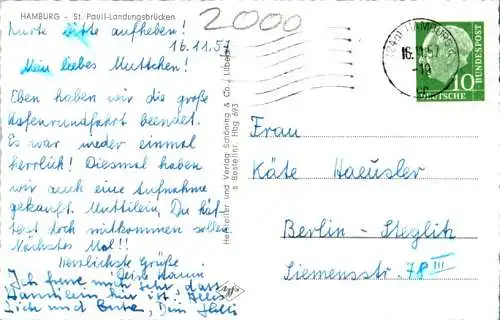 HAMBURG - St. Pauli-Landungsbrücken
2000
Karte bitte aufheben!
16.11.57
Mein liebes Muttchen!
Eben haben wir die große
Hafenrundfahrt beendet.
Es war wieder einmal
herrlich! Diesmal haben
wir auch eine Aufnahme
gekauft. Muttilein, Du hät-
test doch mitkommen sollen
Nächstes Mal!!
Herzlichste Grüße
Deine Karin
Ich freue mich sehr, dass
hier ist. Alles
Liebe und Gute, Dein
Hersteller und Verlag Schöning & Co / Lübeck
s Bestellnr. Hbg 693
HAMBURG
16.11.57
-19
10
DEUTSCHE BUNDESPOST
Frau
Käte Haeusler
Berlin - Steglitz
Siemensstr. 78 III